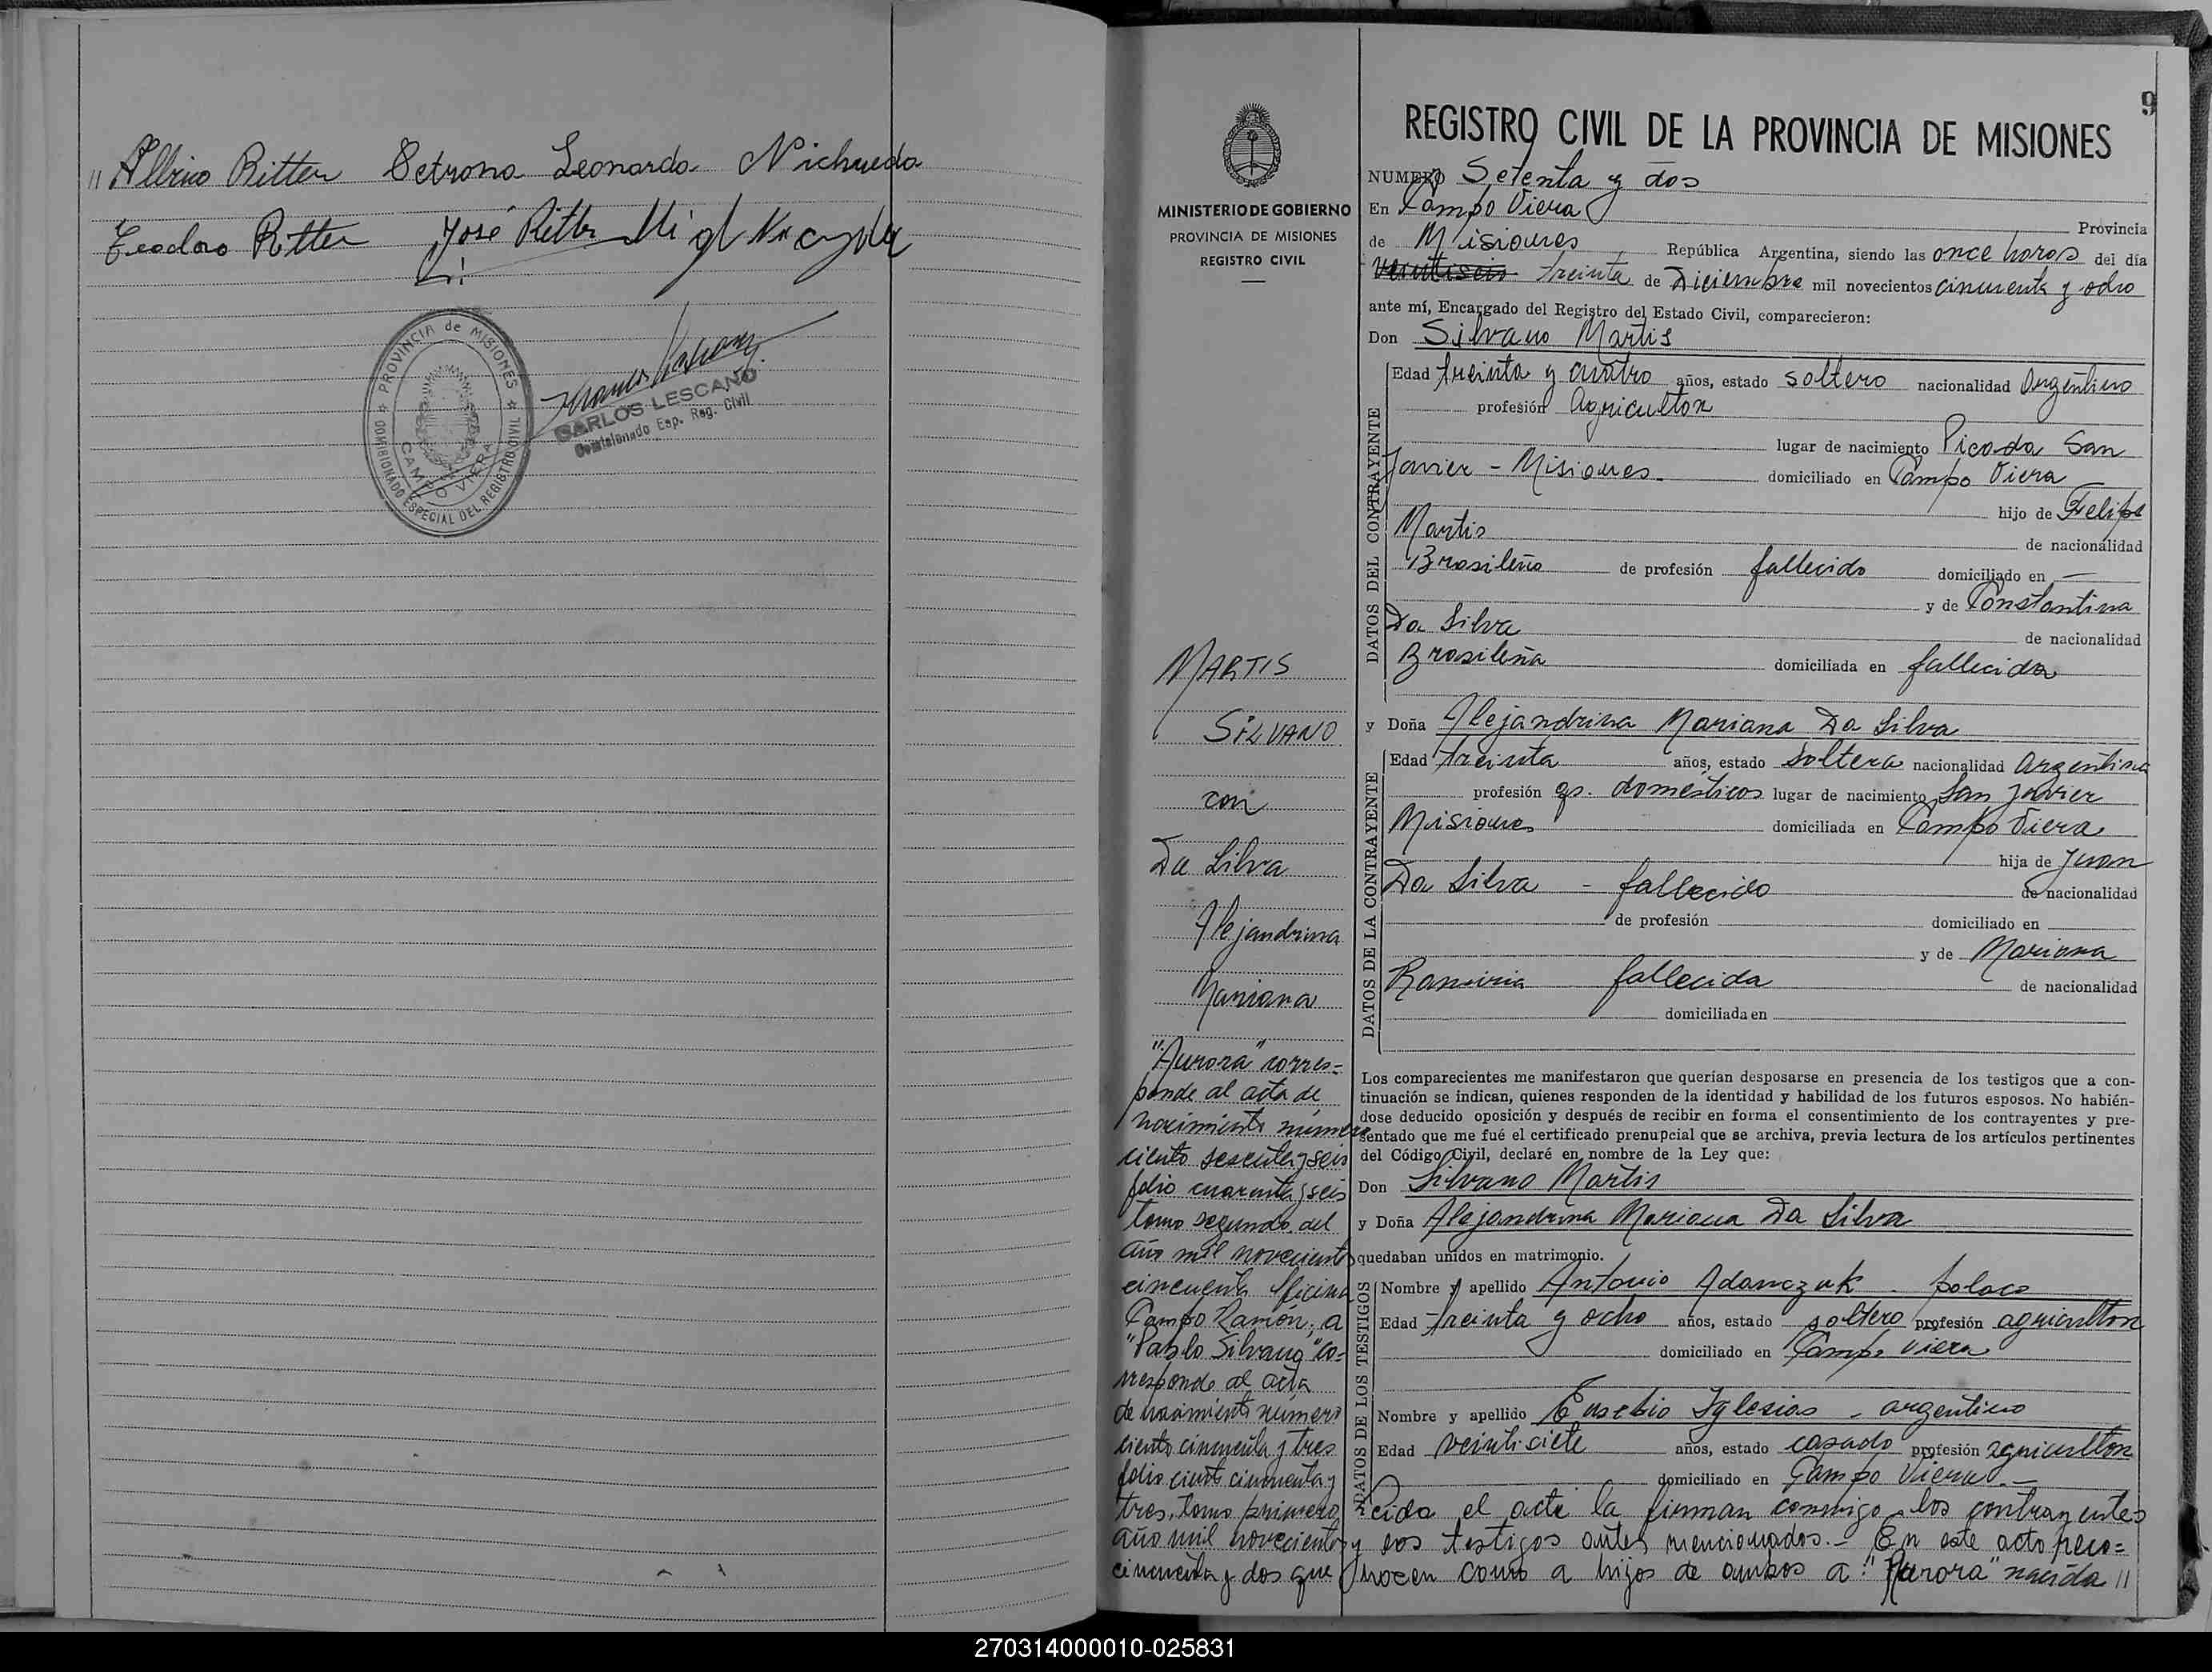 " Albino Ritter Petrona Leonarda Nichueda
Teodoro Ritter José Ritter
PROVINCIA de MISIONES
COMISIONADO ESPECIAL DEL REGISTRO CIVIL
CAMPO VIERA
CARLOS LESCANO
Comisionado Esp. Reg. Civil
9
MINISTERIO DE GOBIERNO
PROVINCIA DE MISIONES
REGISTRO CIVIL
MARTIS
SILVANO
con
Da Silva
Alejandrina
Mariana
"Aurora" corres=
ponde al acta de
nacimiento número
ciento sesenta y seis
folio cuarenta y seis
tomo segundo del
año mil novecientos
cincuenta oficina
Campo Ramón; a
"Pablo Silvano" co-
rresponde al acta
de nacimiento número
ciento cincuenta y tres
folio ciento cincuenta y
tres, tomo primero
año mil novecientos
cincuenta y dos que
REGISTRO CIVIL DE LA PROVINCIA DE MISIONES
NUMERO Setenta y dos
En Campo Viera Provincia
de Misiones República Argentina, siendo las once horas del día
veintiseis treinta de Diciembre mil novecientos cincuenta y ocho
ante mí, Encargado del Registro del Estado Civil, comparecieron:
Don Silvano Martis
DATOS DEL CONTRAYENTE
Edad treinta y cuatro años, estado soltero nacionalidad Argentino
profesión Agricultor
lugar de nacimiento Picada San
Javier - Misiones. domiciliado en Campo Viera
hijo de Felipe
Martis de nacionalidad
Brasileño de profesión fallecido domiciliado en —
y de Constantina
Da Silva de nacionalidad
Brasileña domiciliada en fallecida
y Doña Alejandrina Mariana Da Silva
DATOS DE LA CONTRAYENTE
Edad treinta años, estado soltera nacionalidad argentina
profesión qs. domésticos lugar de nacimiento San Javier
Misiones domiciliada en Campo Viera
hija de Juan
Da Silva - fallecido de nacionalidad
de profesión domiciliado en
y de Mariana
Ramiria fallecida de nacionalidad
domiciliada en
Los comparecientes me manifestaron que querían desposarse en presencia de los testigos que a con-
tinuación se indican, quienes responden de la identidad y habilidad de los futuros esposos. No habién-
dose deducido oposición y después de recibir en forma el consentimiento de los contrayentes y pre-
sentado que me fué el certificado prenupcial que se archiva, previa lectura de los artículos pertinentes
del Código Civil, declaré en nombre de la Ley que:
Don Silvano Martis
y Doña Alejandrina Mariana Da Silva
quedaban unidos en matrimonio.
DATOS DE LOS TESTIGOS
Nombre y apellido Antonio Adamczuk - polaco
Edad treinta y ocho años, estado soltero profesión agricultor
domiciliado en Campo Viera
Nombre y apellido Eusebio Iglesias - argentino
Edad veintisiete años, estado casado profesión agricultor
domiciliado en Campo Viera. -
Leida el acta la firman conmigo los contrayentes
y los testigos antes mencionados. - En este acto reco=
nocen como a hijos de ambos a: "Aurora" nacida "
270314000010-025831